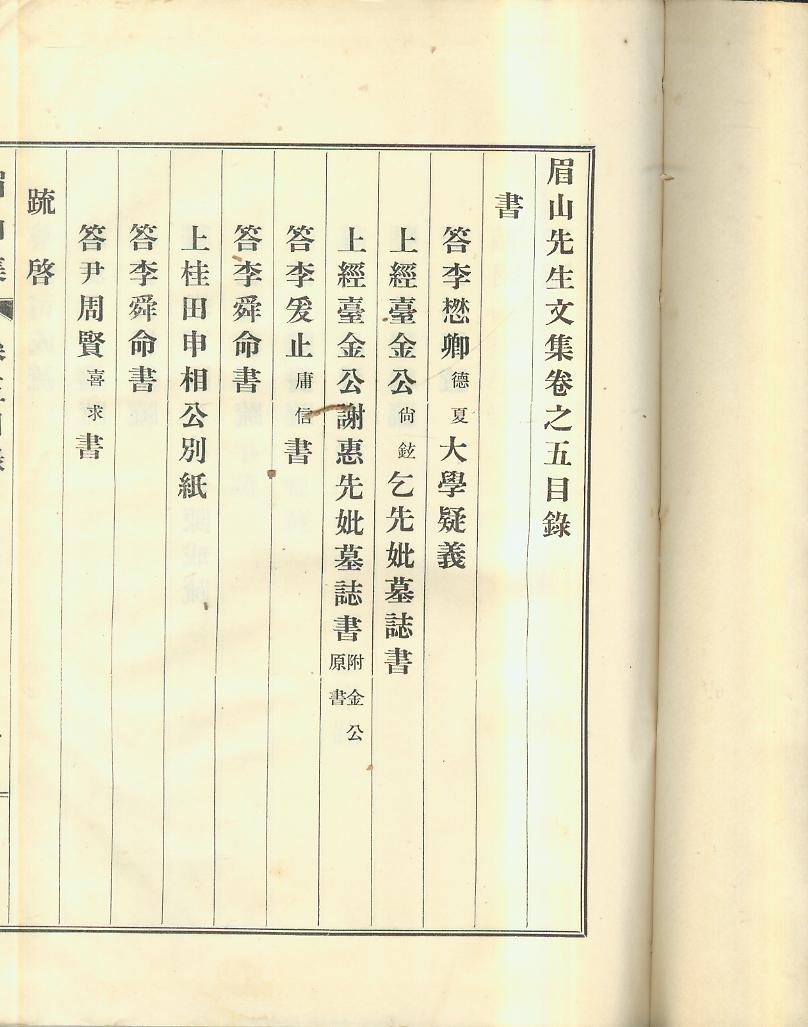 眉山先生文集卷之五目錄
書
答李懋卿德夏大學疑義
上經臺金公尙鉉乞先妣墓誌書
上經臺金公謝惠先妣墓誌書附金公原書
答李爰止庸信書
答李舜命書
上桂田申相公別紙
答李舜命書
答尹周賢喜求書
疏啓